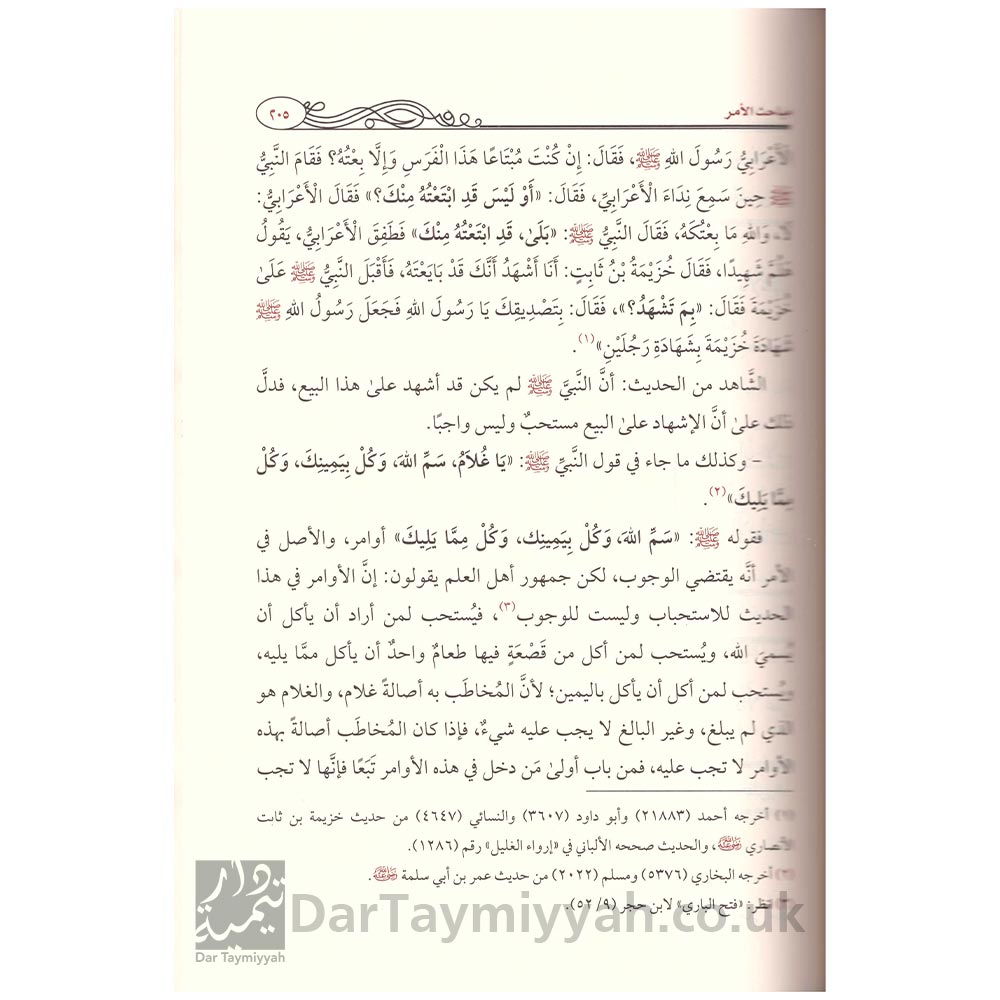 مباحث الأمر
٢٠٥
الْأَعْرَابِيُّ رَسُولَ اللهِ ﷺ، فَقَالَ: إِنْ كُنْتَ مُبْتَاعًا هَذَا الْفَرَسِ وَإِلَّا بِعْتُهُ؟ فَقَامَ النَّبِيُّ
ﷺ حِينَ سَمِعَ نِدَاءَ الْأَعْرَابِيِّ، فَقَالَ: «أَوْ لَيْسَ قَدِ ابْتَعْتُهُ مِنْكَ؟» فَقَالَ الْأَعْرَابِيُّ:
لَا، وَاللهِ مَا بِعْتُكَهُ، فَقَالَ النَّبِيُّ ﷺ: «بَلَىٰ، قَدِ ابْتَعْتُهُ مِنْكَ» فَطَفِقَ الْأَعْرَابِيُّ، يَقُولُ
هَلُمَّ شَهِيدًا، فَقَالَ خُزَيْمَةُ بْنُ ثَابِتٍ: أَنَا أَشْهَدُ أَنَّكَ قَدْ بَايَعْتَهُ، فَأَقْبَلَ النَّبِيُّ ﷺ عَلَىٰ
خُزَيْمَةَ فَقَالَ: «بِمَ تَشْهَدُ؟»، فَقَالَ: بِتَصْدِيقِكَ يَا رَسُولَ اللهِ فَجَعَلَ رَسُولُ اللهِ ﷺ
شَهَادَةَ خُزَيْمَةَ بِشَهَادَةِ رَجُلَيْنِ»(١).
الشَّاهد من الحديث: أنَّ النَّبيَّ ﷺ لم يكن قد أشهد علىٰ هذا البيع، فدلَّ
ذلك علىٰ أنَّ الإشهاد علىٰ البيع مستحبٌ وليس واجبًا.
- وكذلك ما جاء في قول النَّبيِّ ﷺ: «يَا غُلَامُ، سَمِّ اللهَ، وَكُلْ بِيَمِينِكَ، وَكُلْ
مِمَّا يَلِيكَ»(٢).
فقوله ﷺ: «سَمِّ اللهَ، وَكُلْ بِيَمِينِك، وَكُلْ مِمَّا يَلِيكَ» أوامر، والأصل في
الأمر أنَّه يقتضي الوجوب، لكن جمهور أهل العلم يقولون: إنَّ الأوامر في هذا
الحديث للاستحباب وليست للوجوب(٣)، فيُستحب لمن أراد أن يأكل أن
يُسميَ الله، ويُستحب لمن أكل من قَصْعَةٍ فيها طعامٌ واحدٌ أن يأكل ممَّا يليه،
ويُستحب لمن أكل أن يأكل باليمين؛ لأنَّ المُخاطَب به أصالةً غلام، والغلام هو
الذي لم يبلغ، وغير البالغ لا يجب عليه شيءٌ، فإذا كان المُخاطَب أصالةً بهذه
الأوامر لا تجب عليه، فمن باب أولىٰ مَن دخل في هذه الأوامر تَبَعًا فإنَّها لا تجب
(١) أخرجه أحمد (٢١٨٨٣) وأبو داود (٣٦٠٧) والنسائي (٤٦٤٧) من حديث خزيمة بن ثابت
الأنصاري رضي الله عنه، والحديث صححه الألباني في «إرواء الغليل» رقم (١٢٨٦).
(٢) أخرجه البخاري (٥٣٧٦) ومسلم (٢٠٢٢) من حديث عمر بن أبي سلمة رضي الله عنه.
(٣) انظر: «فتح الباري» لابن حجر (٩/ ٥٢).
دار تيمية
Dar Taymiyyah
DarTaymiyyah.co.uk